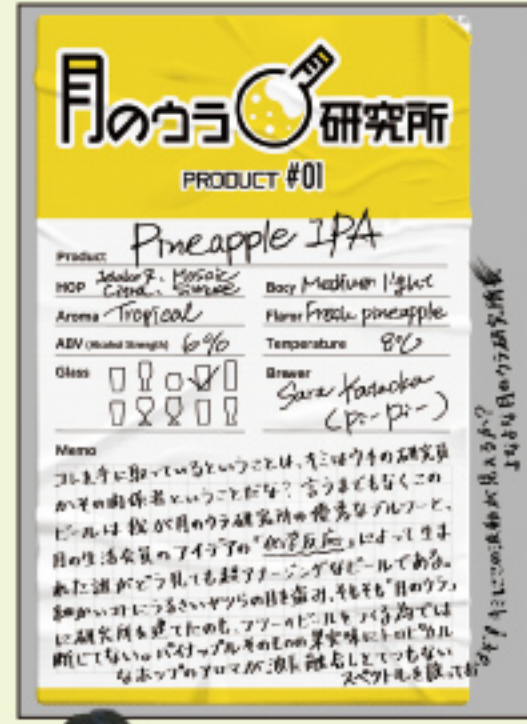 月のウラ研究所
PRODUCT #01
Product Pineapple IPA
HOP Mosaic Citra. Simcoe
Body Medium light
Aroma Tropical
Flavor Fresh pineapple
ABV (Alcohol Strength) 6%
Temperature 8℃
Glass
Brewer Sara Kanaoka (pi-pi-)
Memo
コレを手に取っているということは、キミはウチの研究員
かその関係者ということだな? 言うまでもなくこの
ビールは我が月のウラ研究所の優秀なブルワーと、
月の生活会員のアイデアの"化学反応"によって生ま
れた誰がどう見ても超アメージングなビールである。
細かいコトにうるさいヤツらの目を盗み、そもそも"月のウラ"
に研究所を建てたのも、フツーのビールをつくる為では
断じてない。パイナップルそのものの果実味にトロピカル
なホップのアロマが溶け融合しとてつもない
スペクトルを放ってお
キミにこの波動が見えるか?
よなよな月のウラ研究所